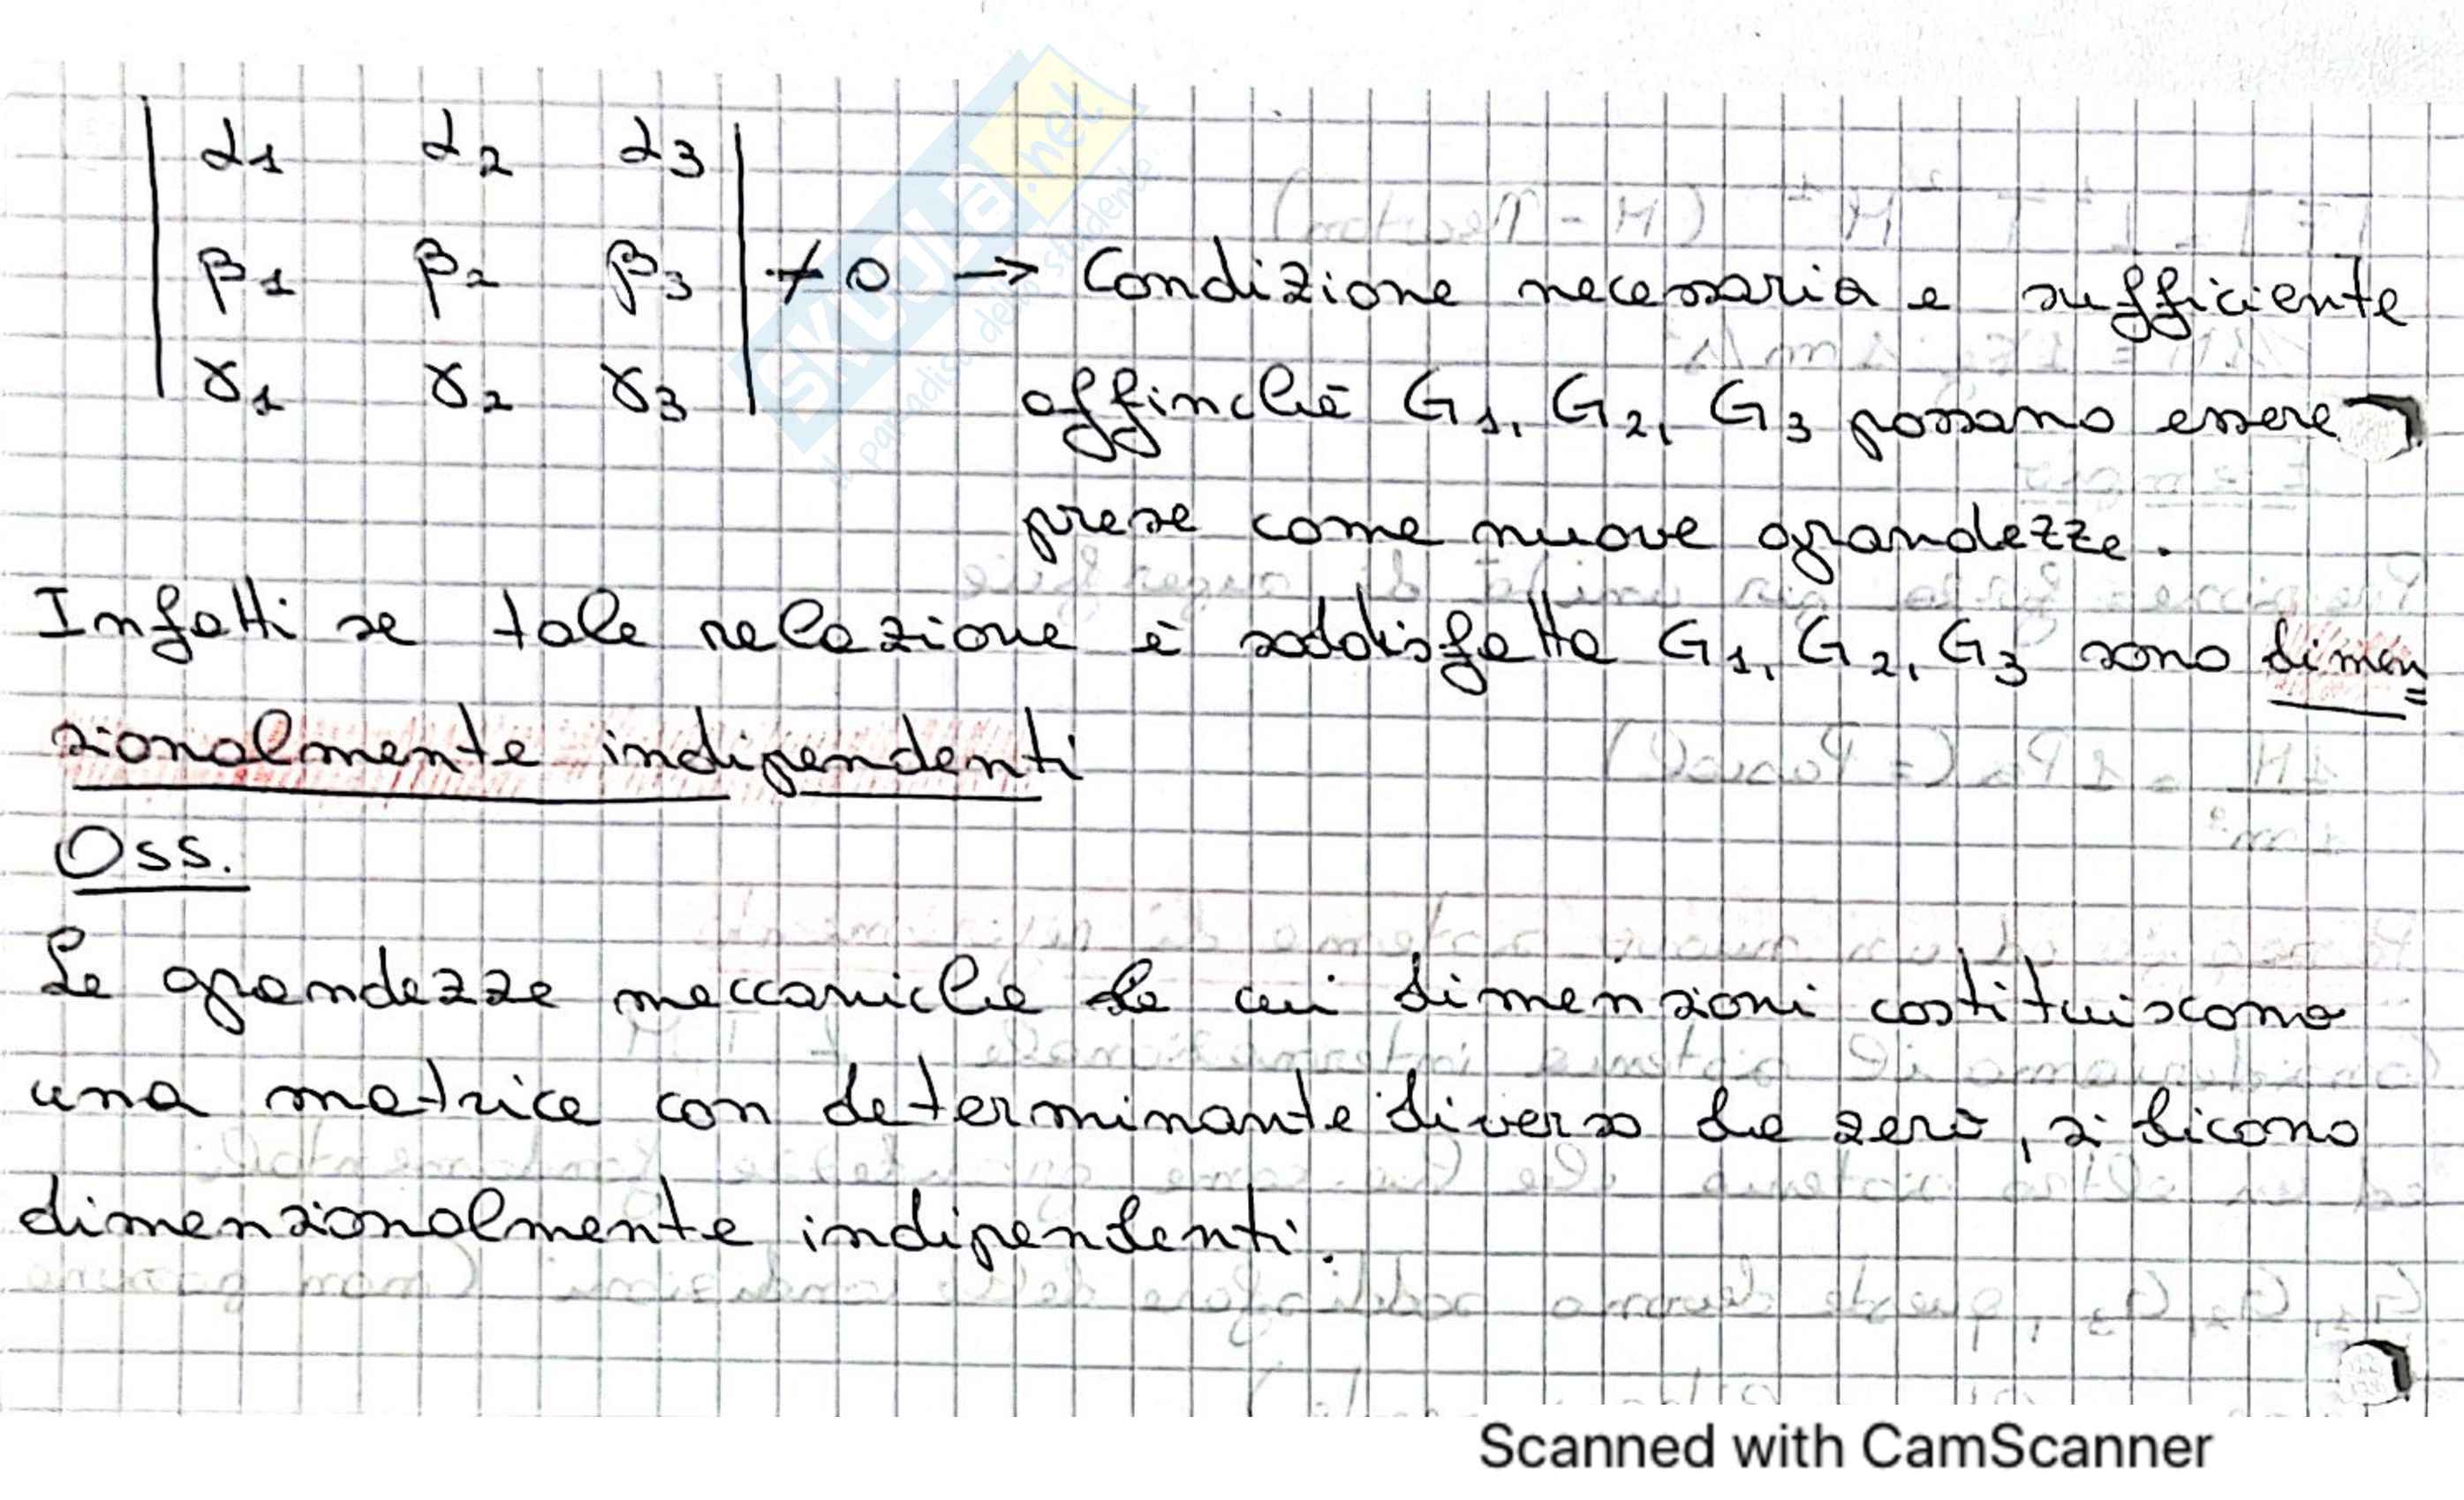 α1 α2 α3
β1 β2 β3 ≠ 0 → Condizione necessaria e sufficiente
γ1 γ2 γ3 affinchè G1, G2, G3 possano essere
prese come nuove grandezze.
Infatti se tale relazione è soddisfatta G1, G2, G3 sono dimen=
sionalmente indipendenti
Oss.
Le grandezze meccaniche le cui dimensioni costituiscono
una matrice con determinante diverso da zero, si dicono
dimensionalmente indipendenti.
SKUOLA.net
il paradiso dello studente
Scanned with CamScanner